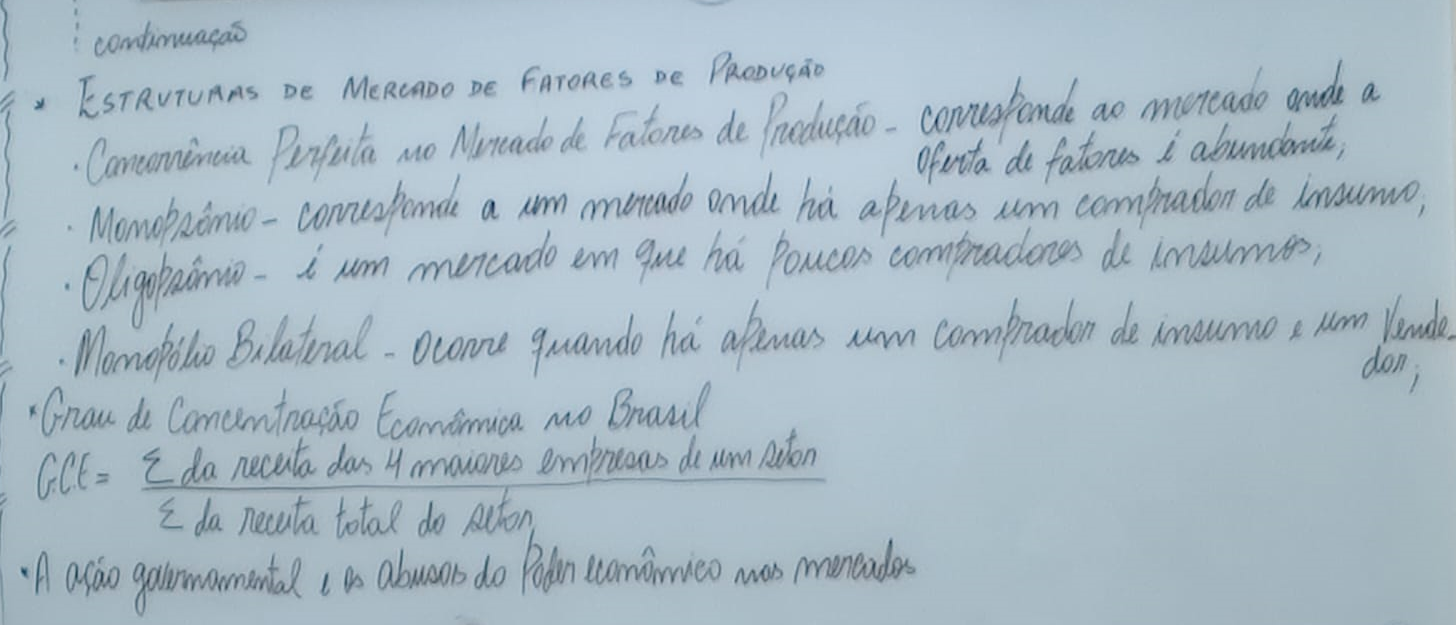 continuação
* ESTRUTURAS DE MERCADO DE FATORES DE PRODUÇÃO
· Concorrência Perfeita no Mercado de Fatores de Produção - corresponde ao mercado onde a
oferta de fatores é abundante;
· Monopsônio - corresponde a um mercado onde há apenas um comprador de insumo;
· Oligopsônio - é um mercado em que há poucos compradores de insumos;
· Monopólio Bilateral - ocorre quando há apenas um comprador de insumo e um vende-
dor;
* Grau de Concentração Econômica no Brasil
G.C.E = Σ da receita das 4 maiores empresas de um setor
Σ da receita total do setor
· A ação governamental e os abusos do Poder econômico nos mercados